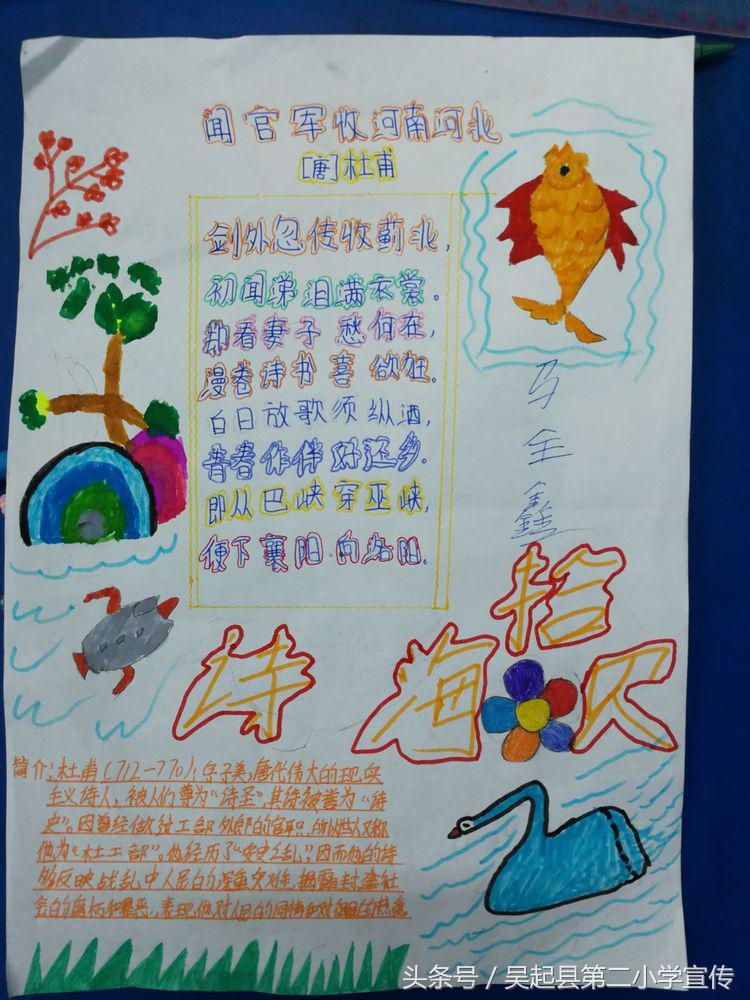 闻官军收河南河北
[唐]杜甫
剑外忽传收蓟北，
初闻涕泪满衣裳。
却看妻子愁何在，
漫卷诗书喜欲狂。
白日放歌须纵酒，
青春作伴好还乡.
即从巴峡穿巫峡，
便下襄阳向洛阳.
马
全
鑫
诗海拾贝
简介:杜甫(712—770):字子美,唐代伟大的现实
主义诗人，被人们尊为“诗圣”,其诗被誉为“诗
史”。因曾经做过工部外郎的官职,所以世人又称
他为“杜工部”。他经历了“安史之乱”,因而他的诗
多反映战乱中人民的深重灾难,揭露封建社
会的和罪恶,表现他对人民的同情和对祖国的热爱
头条号／吴起县第二小学宣传